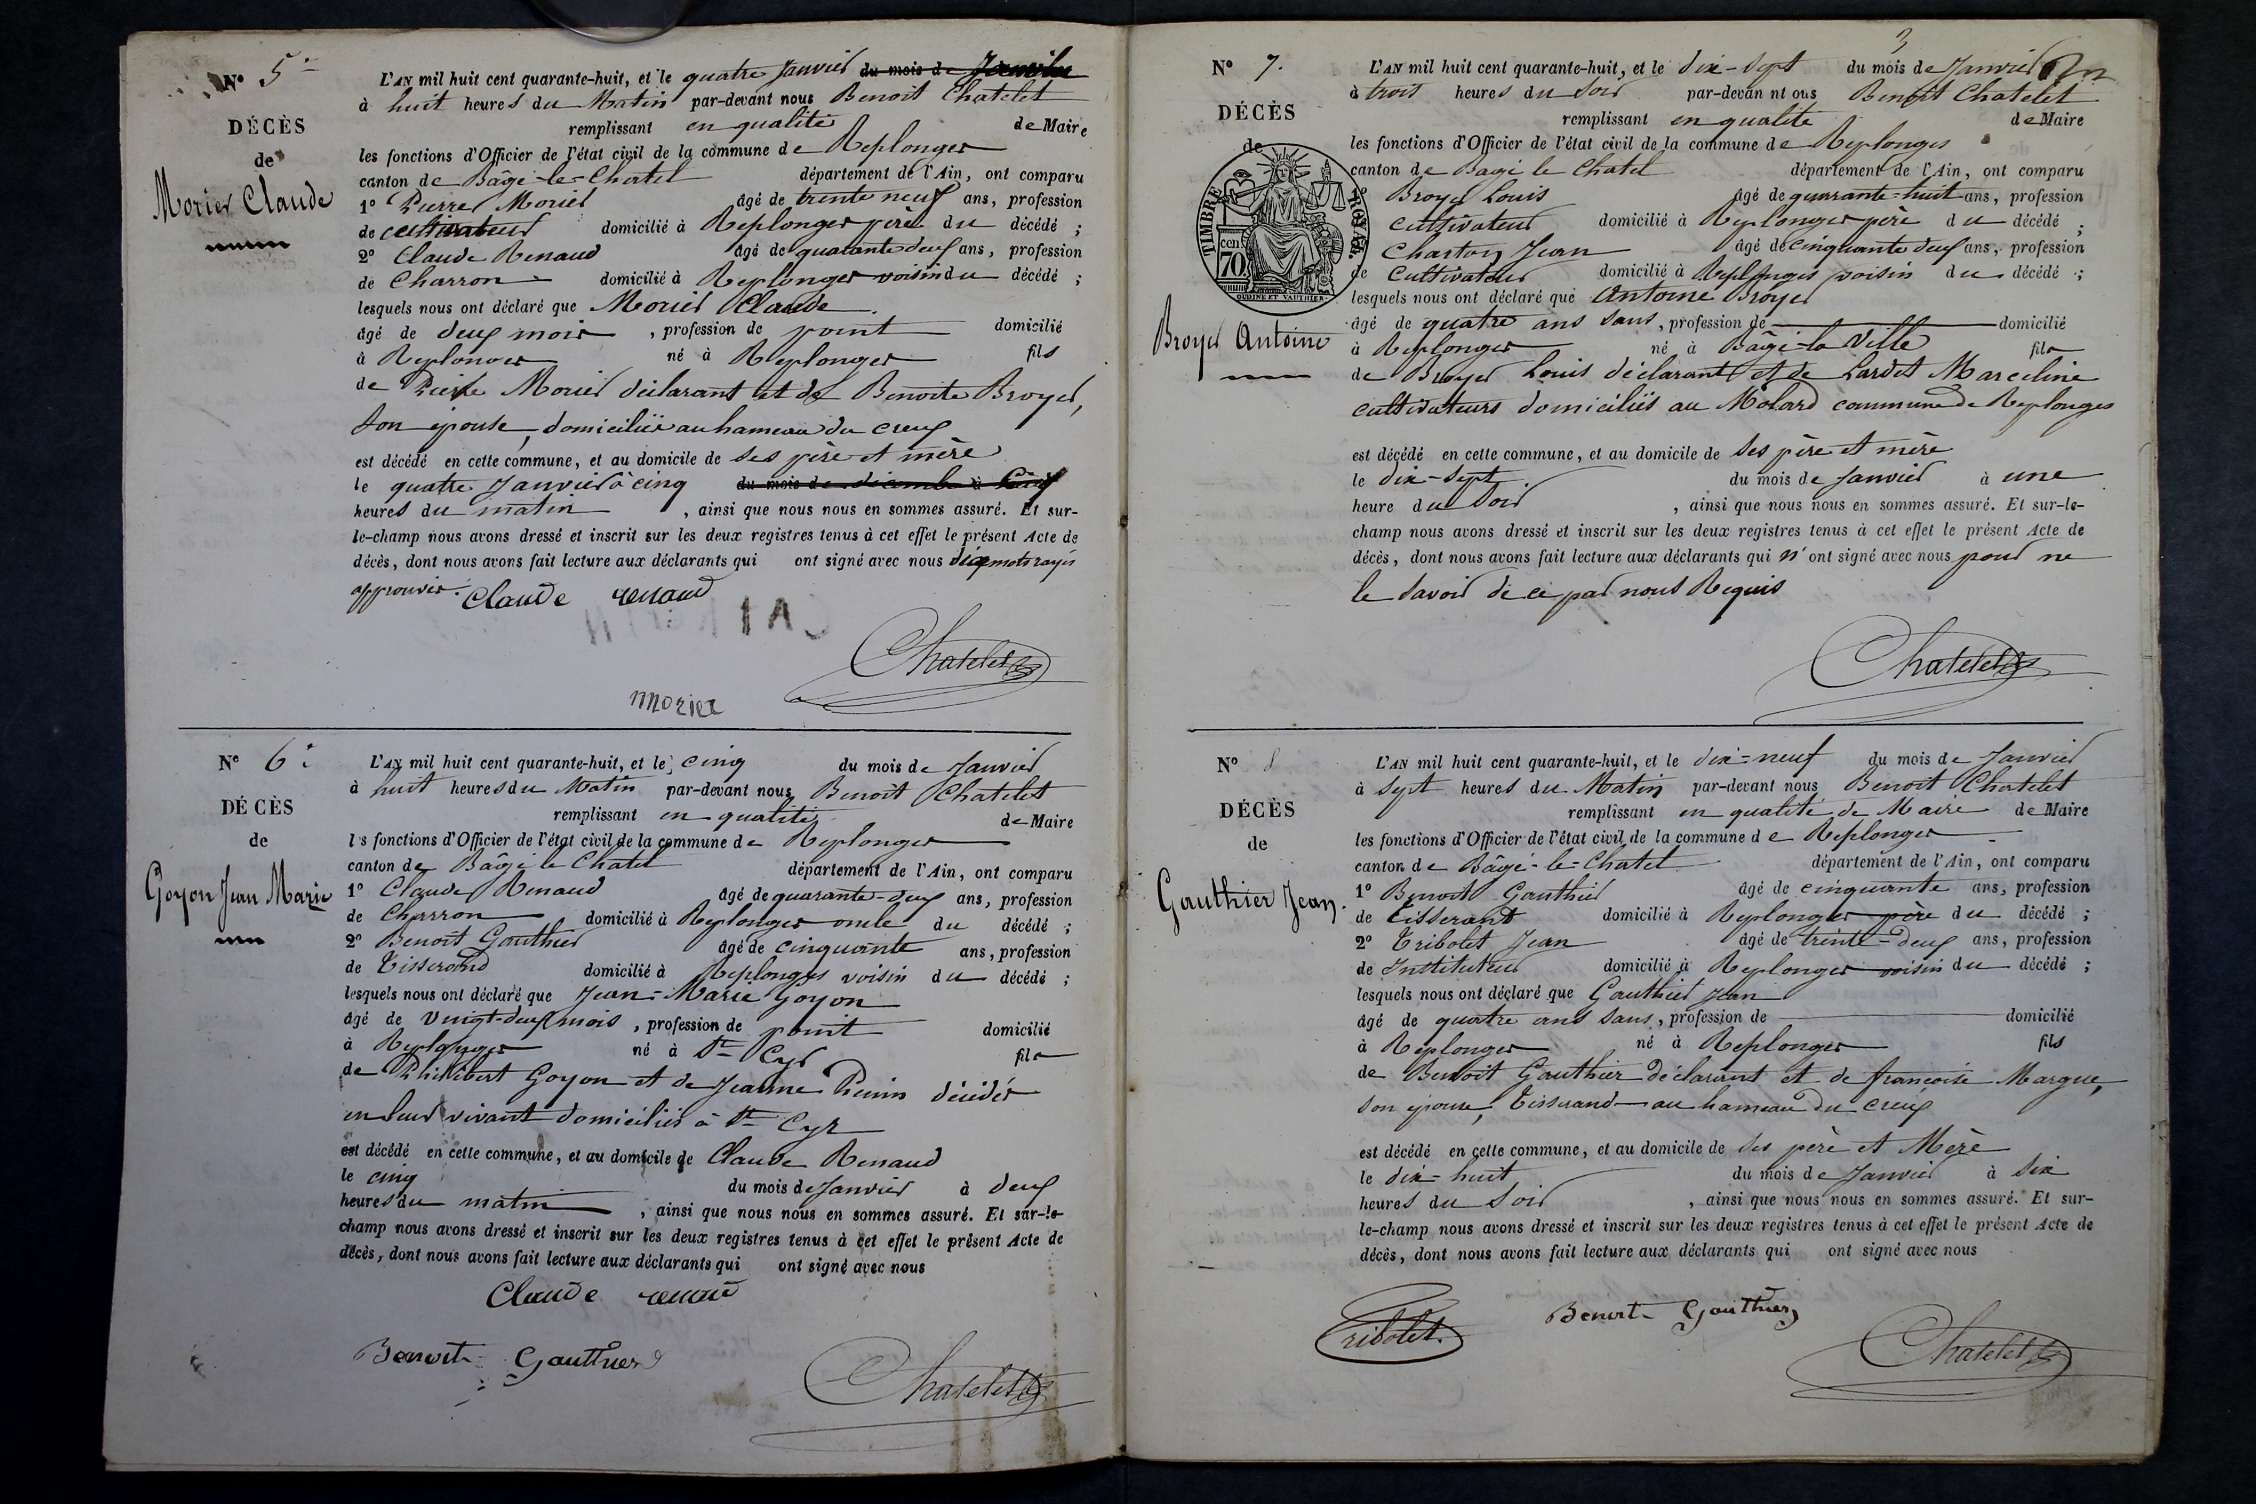 N° 5
DÉCÈS
de
Morier Claude
L'AN mil huit cent quarante-huit, et le quatre Janvier du mois de
à huit heures du Matin par-devant nous Benoit Chatelet
remplissant en qualité de Maire
les fonctions d'Officier de l'état civil de la commune de Replonges
canton de Bâgé-le-Chatel département de l'Ain, ont comparu
1° Pierre Morier âgé de trente neuf ans, profession
de cultivateur domicilié à Replonges père du décédé ;
2° Claude Renaud âgé de quarante deux ans, profession
de Charron domicilié à Replonges voisin du décédé ;
lesquels nous ont déclaré que Morier Claude
âgé de deux mois , profession de point domicilié
à Replonges né à Replonges fils
de Pierre Morier déclarant et de Benoite Broyer,
son épouse, domiciliés au hameau du creux
est décédé en cette commune, et au domicile de ses père et mère
le quatre Janvier à cinq du mois de à
heures du matin , ainsi que nous nous en sommes assuré. Et sur-
le-champ nous avons dressé et inscrit sur les deux registres tenus à cet effet le présent Acte de
décès, dont nous avons fait lecture aux déclarants qui ont signé avec nous dix mots rayés
approuvés. Claude renaud
Chatelet
morier
N° 6
DÉCÈS
de
Goyon Jean Marie
L'AN mil huit cent quarante-huit, et le cinq du mois de Janvier
à huit heures du Matin par-devant nous Benoit Chatelet
remplissant en qualité de Maire
l s fonctions d'Officier de l'état civil de la commune de Replonges
canton de Bâgé le Chatel département de l'Ain, ont comparu
1° Claude Renaud âgé de quarante-deux ans, profession
de Charron domicilié à Replonges oncle du décédé ;
2° Benoit Gauthier âgé de cinquante ans, profession
de Tisserand domicilié à Replonges voisin du décédé ;
lesquels nous ont déclaré que Jean-Marie Goyon
âgé de vingt-deux mois , profession de point domicilié
à Replonges né à St Cyr fils
de Philibert Goyon et de Jeanne décédés
en leur vivant domiciliés à St Cyr
est décédé en cette commune, et au domicile de Claude Renaud
le cinq du mois de Janvier à deux
heures du matin , ainsi que nous nous en sommes assuré. Et sur-le-
champ nous avons dressé et inscrit sur les deux registres tenus à cet effet le présent Acte de
décès, dont nous avons fait lecture aux déclarants qui ont signé avec nous
Claude renaud
Benoit Gauthier
Chatelet
3
N° 7.
DÉCÈS
de
TIMBRE ROYAL
70 cent
OUDINÉ ET VAUTHIER
Broyer Antoine
L'AN mil huit cent quarante-huit, et le dix-sept du mois de Janvier
à trois heures du Soir par-devan nt ous Benoit Chatelet
remplissant en qualité de Maire
les fonctions d'Officier de l'état civil de la commune de Replonges
canton de Bagé le Chatel département de l'Ain, ont comparu
Broyer Louis âgé de quarante-huit ans, profession
cultivateur domicilié à Replonges père du décédé ;
Charton Jean âgé de cinquante deux ans, profession
de Cultivateur domicilié à Replonges voisin du décédé ;
lesquels nous ont déclaré que Antoine Broyer
âgé de quatre ans sans , profession de domicilié
à Replonges né à Bâgé-la Ville fils
de Broyer Louis déclarant et de Lardet Marceline
cultivateurs domiciliés au Molard commune de Replonges
est décédé en cette commune, et au domicile de ses père et mère
le dix-sept du mois de Janvier à une
heure du Soir , ainsi que nous nous en sommes assuré. Et sur-le-
champ nous avons dressé et inscrit sur les deux registres tenus à cet effet le présent Acte de
décès, dont nous avons fait lecture aux déclarants qui n'ont signé avec nous pour ne
le savoir de ce par nous Requis
Chatelet
N° 8
DÉCÈS
de
Gauthier Jean.
L'AN mil huit cent quarante-huit, et le dix-neuf du mois de Janvier
à sept heures du Matin par-devant nous Benoit Chatelet
remplissant en qualité de Maire de Maire
les fonctions d'Officier de l'état civil de la commune de Replonges
canton de Bâgé-le-Chatel département de l'Ain, ont comparu
1° Benoit Gauthier âgé de cinquante ans, profession
de Tisserant domicilié à Replonges père du décédé ;
2° Tribolet Jean âgé de trente-deux ans, profession
de Instituteur domicilié à Replonges voisin du décédé ;
lesquels nous ont déclaré que Gauthier Jean
âgé de quatre ans sans , profession de domicilié
à Replonges né à Replonges fils
de Benoit Gauthier déclarant et de françoise Margue,
son épouse, Tisserand au hameau du creux
est décédé en cette commune, et au domicile de ses père et Mère
le dix-huit du mois de Janvier à six
heures du Soir , ainsi que nous nous en sommes assuré. Et sur-
le-champ nous avons dressé et inscrit sur les deux registres tenus à cet effet le présent Acte de
décès, dont nous avons fait lecture aux déclarants qui ont signé avec nous
Tribolet.
Benoit Gauthier
Chatelet